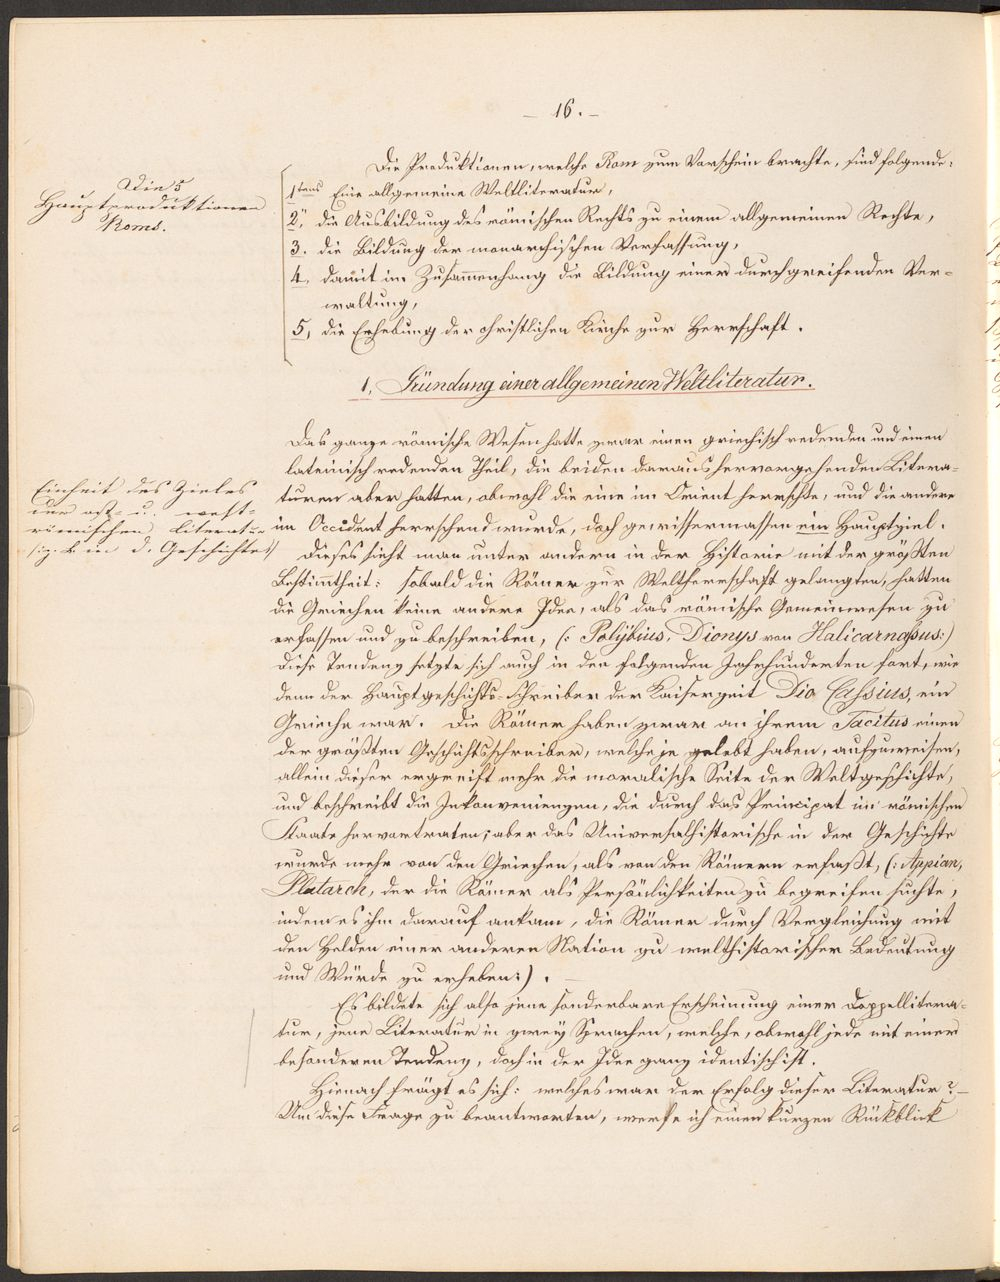 – 16. –
Die Produktionen, welche Rom zum Vorschein brachte, sind folgende:
Die 5
Hauptproduktionen
Roms.
1tens Eine allgemeine Weltliteratur,
2," die Ausbildung des römischen Rechts zu einem allgemeinen Rechte,
3. die Bildung der monarchischen Verfassung,
4, damit im Zusam̅enhang die Bildung einer durchgreifenden Ver-
waltung,
5, die Erhebung der christlichen Kirche zur Herrschaft.
1, Gründung einer allgemeinen Weltliteratur.
Das ganze römische Wesen hatte zwar einen griechisch redenden und einen
lateinisch redenden Theil, die beiden daraus hervorgehenden Litera-
turen aber hatten, obwohl die eine im Orient herrschte, und die andere
im Occident herrschend wurde, doch gewissermassen ein Hauptziel.
Einheit des Zieles
der ost- u. west-
römischen Literatur
(z. B. in d. Geschichte)
Dieses sieht man unter andern in der Historie mit der größten
Bestim̅theit: sobald die Römer zur Weltherrschaft gelangten, hatten
die Griechen keine andere Idee, als das römische Gemeinwesen zu
erfassen und zu beschreiben, (: Polÿbius, Dionys von Halicarnassus:)
diese Tendenz setzte sich auch in den folgenden Jahrhunderten fort, wie
denn der Hauptgeschichts-Schreiber der Kaiserzeit Dio Cassius, ein
Grieche war. Die Römer haben zwar an ihrem Tacitus einen
der größten Geschichtsschreiber, welche je gelebt haben, aufzuweisen,
allein dieser ergreift mehr die moralische Seite der Weltgeschichte,
und beschreibt die Inkonvenienzen, die durch das Principat im römischen
Staate hervortraten; aber das Universalhistorische in der Geschichte
wurde mehr von den Griechen, als von den Römern erfaßt, (: Appian,
Plutarch, der die Römer als Persönlichkeiten zu begreifen suchte,
indem es ihm darauf ankam, die Römer durch Vergleichung mit
den Helden einer anderen Nation zu welthistorischer Bedeutung
und Würde zu erheben:).
Es bildete sich also jene sonderbare Erscheinung einer Doppellitera-
tur, jene Literatur in zweÿ Sprachen, welche, obwohl jede mit einer
besonderen Tendenz, doch in der Idee ganz identisch ist.
Hienach frägt es sich: welches war der Erfolg dieser Literatur? –
Um diese Frage zu beantworten, werfe ich einen kurzen Rückblick